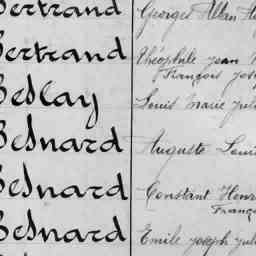 Bertrand Georges Allan
Bertrand Théophile Jean
François
Beslay Louis Marie
Besnard Auguste
Besnard Constant
Besnard Emile Joseph